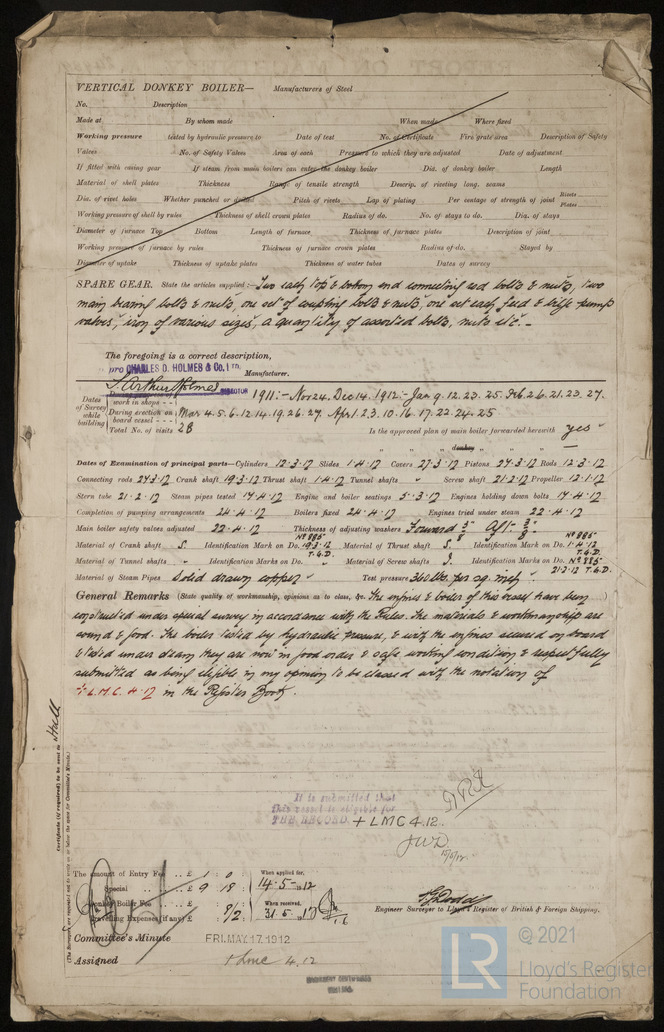 VERTICAL DONKEY BOILER— Manufacturers of Steel
No. Description
Made at By whom made When made Where fixed
Working pressure tested by hydraulic pressure to Date of test No. of Certificate Fire grate area Description of Safety
Valves No. of Safety Valves Area of each Pressure to which they are adjusted Date of adjustment
If fitted with easing gear If steam from main boilers can enter the donkey boiler Dia. of donkey boiler Length
Material of shell plates Thickness Range of tensile strength Descrip. of riveting long. seams
Dia. of rivet holes Whether punched or drilled Pitch of rivets Lap of plating Per centage of strength of joint Rivets Plates
Working pressure of shell by rules Thickness of shell crown plates Radius of do. No. of stays to do. Dia. of stays
Diameter of furnace Top Bottom Length of furnace Thickness of furnace plates Description of joint
Working pressure of furnace by rules Thickness of furnace crown plates Radius of do. Stayed by
Diameter of uptake Thickness of uptake plates Thickness of water tubes Dates of survey
SPARE GEAR. State the articles supplied:— Two each top & bottom end connecting rod bolts & nuts, two
main bearing bolts & nuts, one set of coupling bolts & nuts, one set each feed & bilge pump
valves, iron of various sizes, a quantity of assorted bolts, nuts etc. -
The foregoing is a correct description,
pro CHARLES D. HOLMES & Co. LTD. Manufacturer.
S. Arthur Holmes DIRECTOR
Dates of Survey while building
work in shops - - 1911:- Nov 24. Dec 14. 1912:- Jan 9. 12. 23. 25. Feb 2. 6. 21. 23. 27.
During erection on board vessel - - - Mar 4. 5. 6. 12. 14. 19. 26. 27. Apr 1. 2. 3. 10. 16. 17. 22. 24. 25
Total No. of visits 28 Is the approved plan of main boiler forwarded herewith yes
" " " donkey " " "
Dates of Examination of principal parts—Cylinders 12.3.12 Slides 1.4.12 Covers 27.3.12 Pistons 27.3.12 Rods 12.3.12
Connecting rods 27.3.12 Crank shaft 19.3.12 Thrust shaft 1.4.12 Tunnel shafts " Screw shaft 21.2.12 Propeller 12.1.12
Stern tube 21.2.12 Steam pipes tested 17.4.12 Engine and boiler seatings 5.3.12 Engines holding down bolts 17.4.12
Completion of pumping arrangements 24.4.12 Boilers fixed 24.4.12 Engines tried under steam 22.4.12
Main boiler safety valves adjusted 22.4.12 Thickness of adjusting washers Forward 3/8 Aft 3/8
Material of Crank shaft S. Identification Mark on Do. No 885 19.3.12 T.G.D. Material of Thrust shaft S. Identification Mark on Do. No 885 1.4.12 T.G.D.
Material of Tunnel shafts " Identification Marks on Do. " Material of Screw shafts S. Identification Marks on Do. No 885 21.2.12 T.G.D.
Material of Steam Pipes Solid drawn copper Test pressure 360 lbs. per sq. inch
General Remarks (State quality of workmanship, opinions as to class, &c. The engines & boiler of this vessel have been
constructed under special survey in accordance with the Rules. The materials & workmanship are
sound & good. The boiler tested by hydraulic pressure, & with the engines secured on board
& tested under steam they are now in good order & safe working condition & respectfully
submitted as being eligible in my opinion to be classed with the notation of
+ L.M.C. 4.12 in the Register Book.
It is submitted that
this vessel is eligible for
THE RECORD. + LMC 4.12.
J.W.D.
15/5/12
Certificate (if required) to be sent to Hull
The amount of Entry Fee . . £ 1 : 0 : When applied for,
Special . . £ 9 18 : 14.5.1912
Donkey Boiler Fee . . £ : : When received,
Travelling Expenses (if any) £ : 9/2 : 31.5.12
Engineer Surveyor to Lloyd's Register of British & Foreign Shipping.
Committee's Minute FRI. MAY 17. 1912
Assigned + LMC 4.12
LR © 2021
Lloyd's Register
Foundation